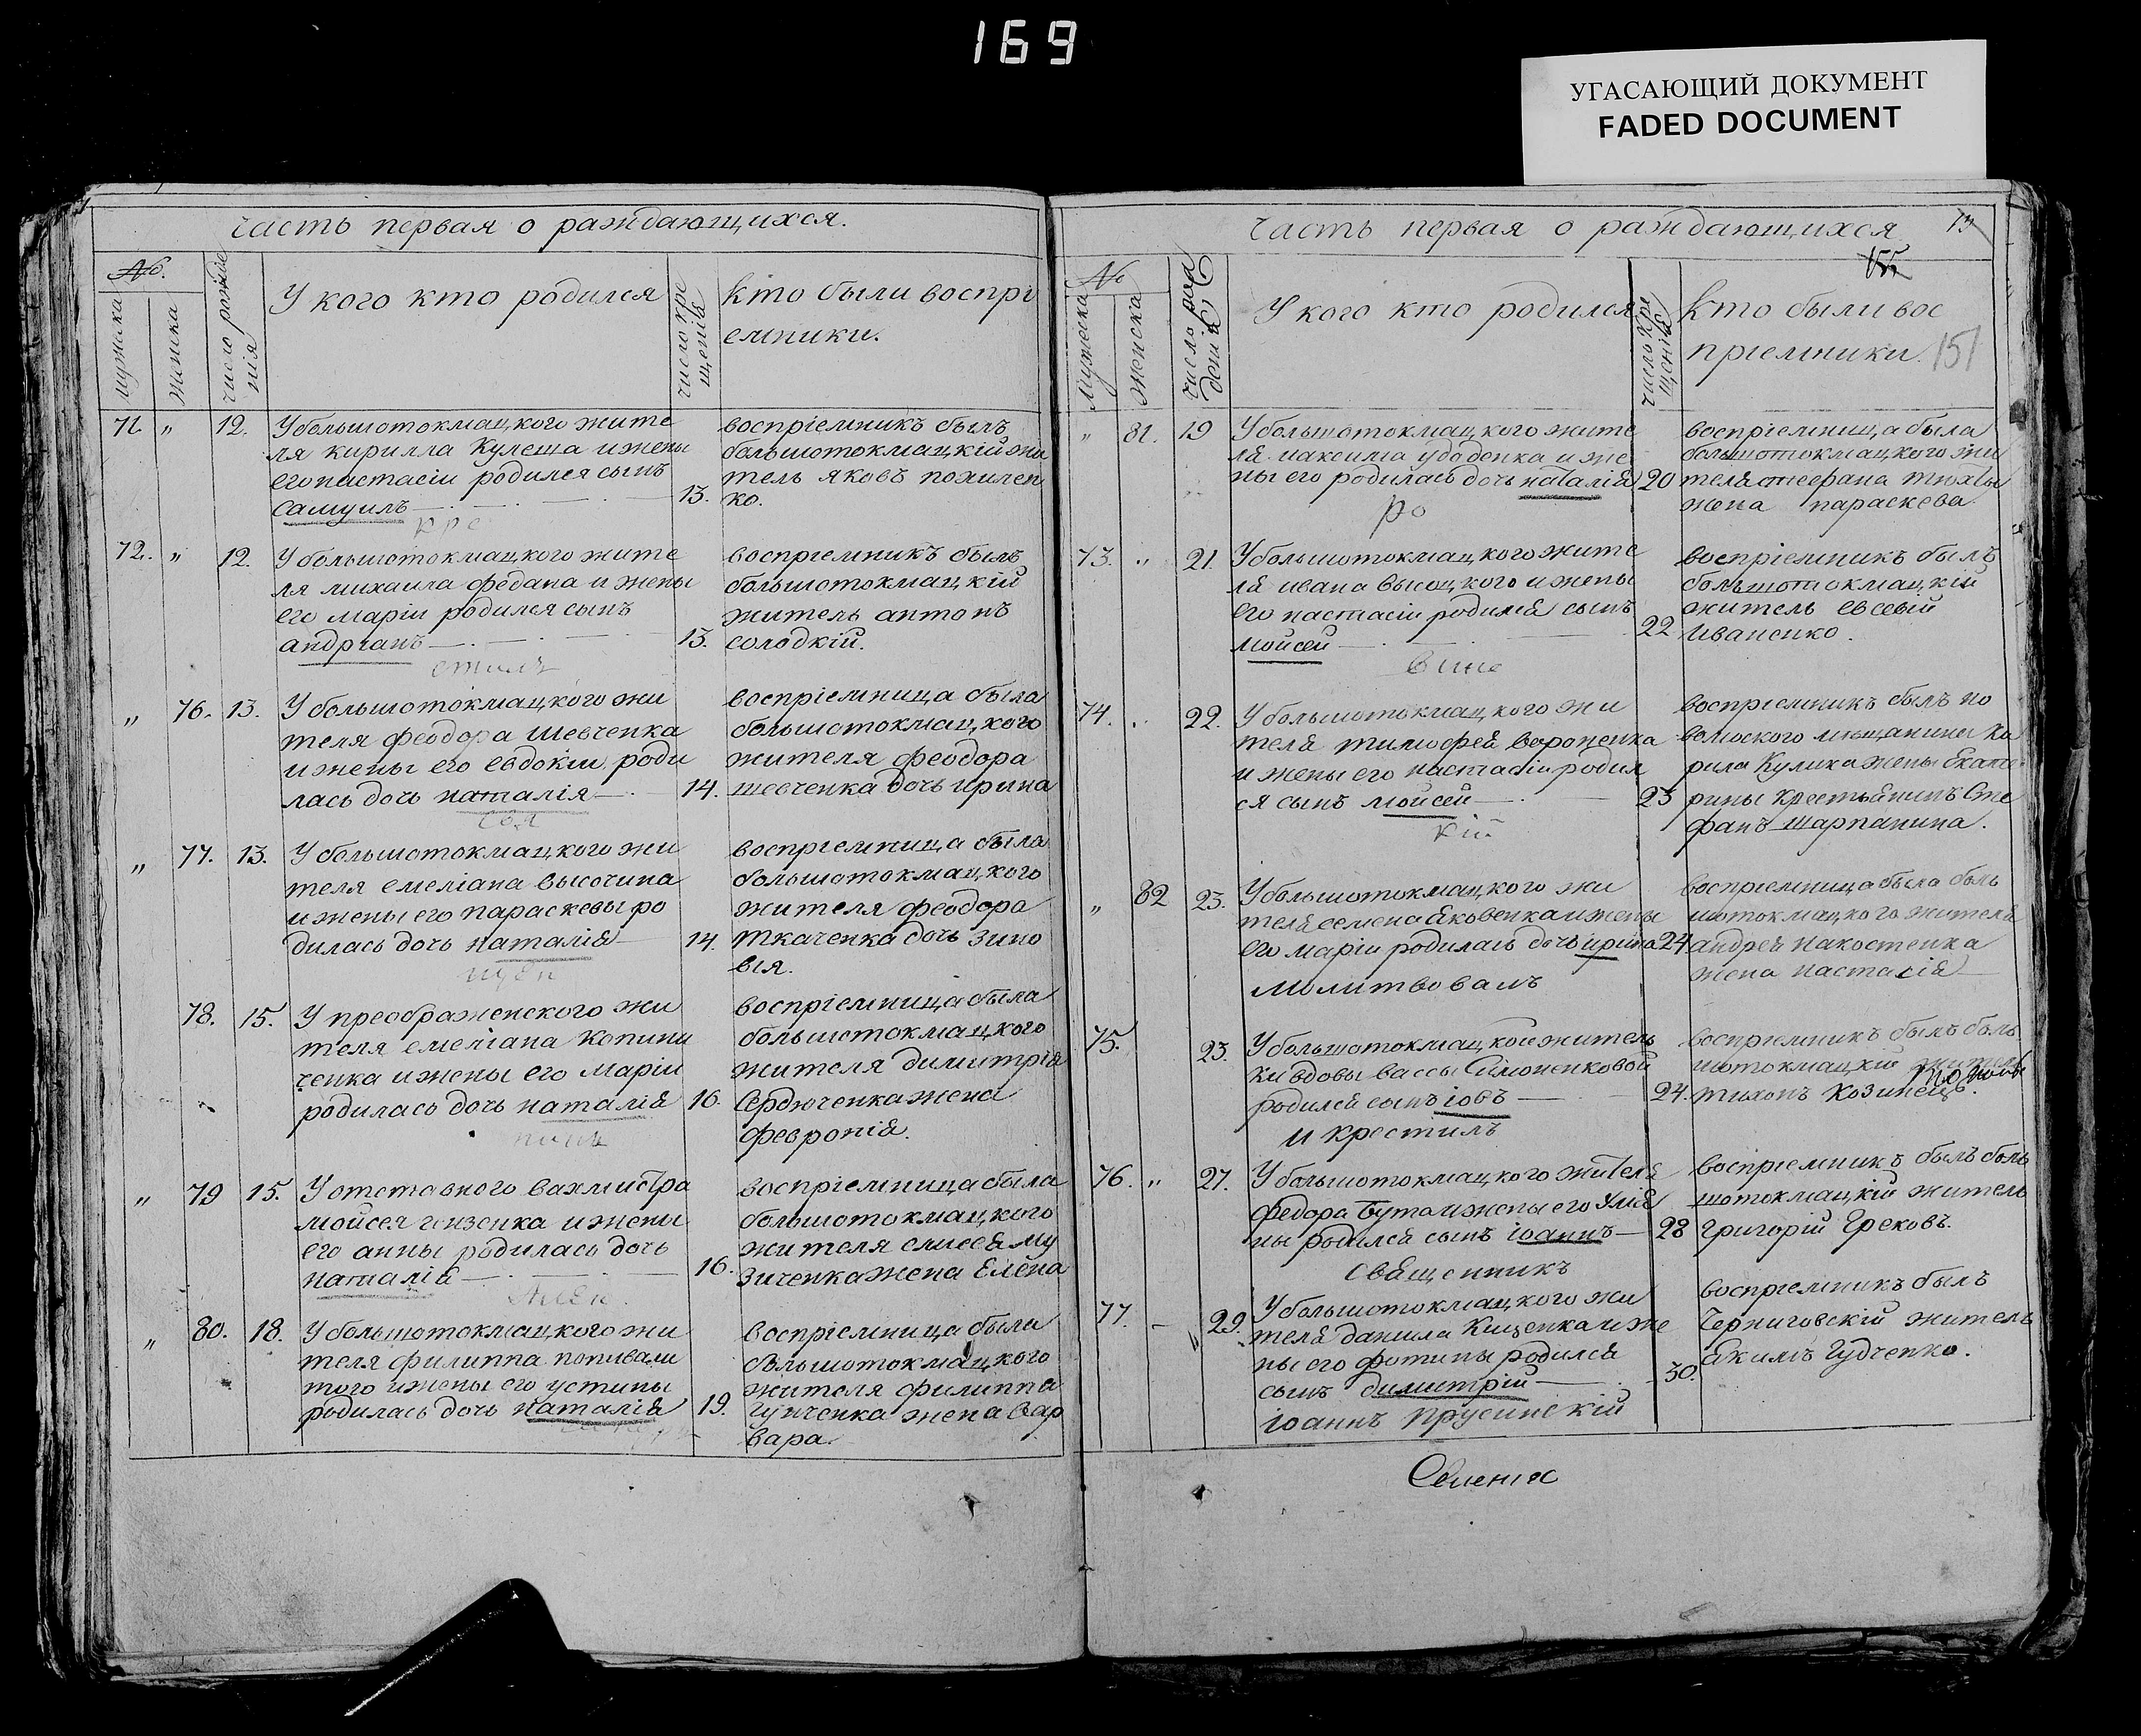 169
УГАСАЮЩИЙ ДОКУМЕНТ
FADED DOCUMENT
часть первая о раждающихся.
№.
мужска
женска
число рожде
нія
У кого кто родился
число кре
щенія
кто были воспрі
емники.
71. „ 12. У большотокмацкого жите
ля кирилла Кулеша и жены
его настасіи родился сынъ
самуилъ — 13.
воспріемникъ былъ
большотокмацкій жи
тель яковъ похилен
ко.
кре
72. „ 12. У большотокмацкого жите
ля михаила федана и жены
его маріи родился сынъ
андріанъ — 13.
воспріемникъ былъ
большотокмацкій
житель антонъ
солодкій.
„ 76. 13. У большотокмацкого жи
теля феодора шевченка
и жены его евдокіи роди
лась дочь наталія — 14.
воспріемница была
большотокмацкого
жителя феодора
шевченка дочь ирина
„ 77. 13. У большотокмацкого жи
теля емеліана высочина
и жены его параскевы ро
дилась дочь наталія — 14.
воспріемница была
большотокмацкого
жителя феодора
ткаченка дочь зино
вія.
78. 15. У преображенского жи
теля емеліана Копини
ченка и жены его маріи
родилась дочь наталія 16.
воспріемница была
большотокмацкого
жителя димитрія
Сердюченка жена
февронія.
„ 79 15. У отставного вахмистра
мойсея гензенка и жены
его анны родилась дочь
наталія — 16.
воспріемница была
большотокмацкого
жителя елисея му
зиченка жена Елена
„ 80. 18. У большотокмацкого жи
теля филиппа попивали
того и жены его устины
родилась дочь наталія 19.
воспріемница была
большотокмацкого
жителя филиппа
гунченка жена Вар
вара
часть первая о раждающихся
151
№
мужеска
женска
число рож
денія
У кого кто родился
число кре
щенія
Кто были вос
пріемники.
„ 81. 19 У большотокмацкого жите
ля максима убоденка и же
ны его родилась дочь наталія 20
воспріемница была
большотокмацкого жи
теля стефана тюхты
жена параскева
ро
73. „ 21. У большотокмацкого жите
ля ивана высоцкого и жены
его настасіи родился сынъ
мойсей — 22
воспріемникъ былъ
большотокмацкій
житель евсевій
Иваненко.
74. „ 22. У большотокмацкого жи
теля тимофея вороненка
и жены его настасіи родил
ся сынъ мойсей — 23
воспріемникъ былъ
мещанина Ки
рила Кулика жены Екате
рины крестьянинъ Сте
фанъ шарпанина.
кій
„ 82 23. У большотокмацкого жи
теля семена яковенка и жены
его маріи родилась дочь ирина 24
воспріемница была боль
шотокмацкого жителя
андрея накостенка
жена настасія
молитвовалъ
75. 23. У большотокмацкой житель
ки вдовы вассы Симоненковой
родился сынъ іовъ — 24.
воспріемникъ былъ боль
шотокмацкій житель
тихонъ Козинецъ.
и крестилъ
76. „ 27. У большотокмацкого жителя
федора Бута и жены его Улія
ны родился сынъ іоаннъ — 28
воспріемникъ былъ боль
шотокмацкій житель
григорій Грековъ.
священникъ
77. – 29. У большотокмацкого жи
теля данила Кищенка и же
ны его фотины родился
сынъ димитрій — 30.
воспріемникъ былъ
Черниговскій житель
якимъ Гудченко.
іоаннъ Прусинскій
Семенъ